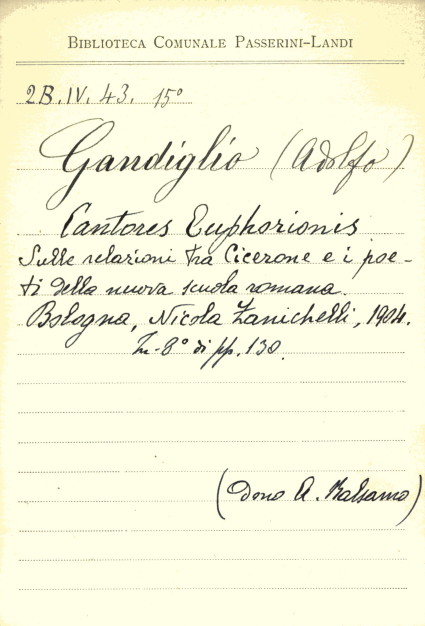 BIBLIOTECA COMUNALE PASSERINI-LANDI
2B.IV.43. 15°
Gandiglio (Adolfo)
Cantores Euphorionis
Sulle relazioni tra Cicerone e i poe-
ti della nuova scuola romana.
Bologna, Nicola Zanichelli, 1904.
In-8° di pp. 130.
(Dono A. Balsamo)